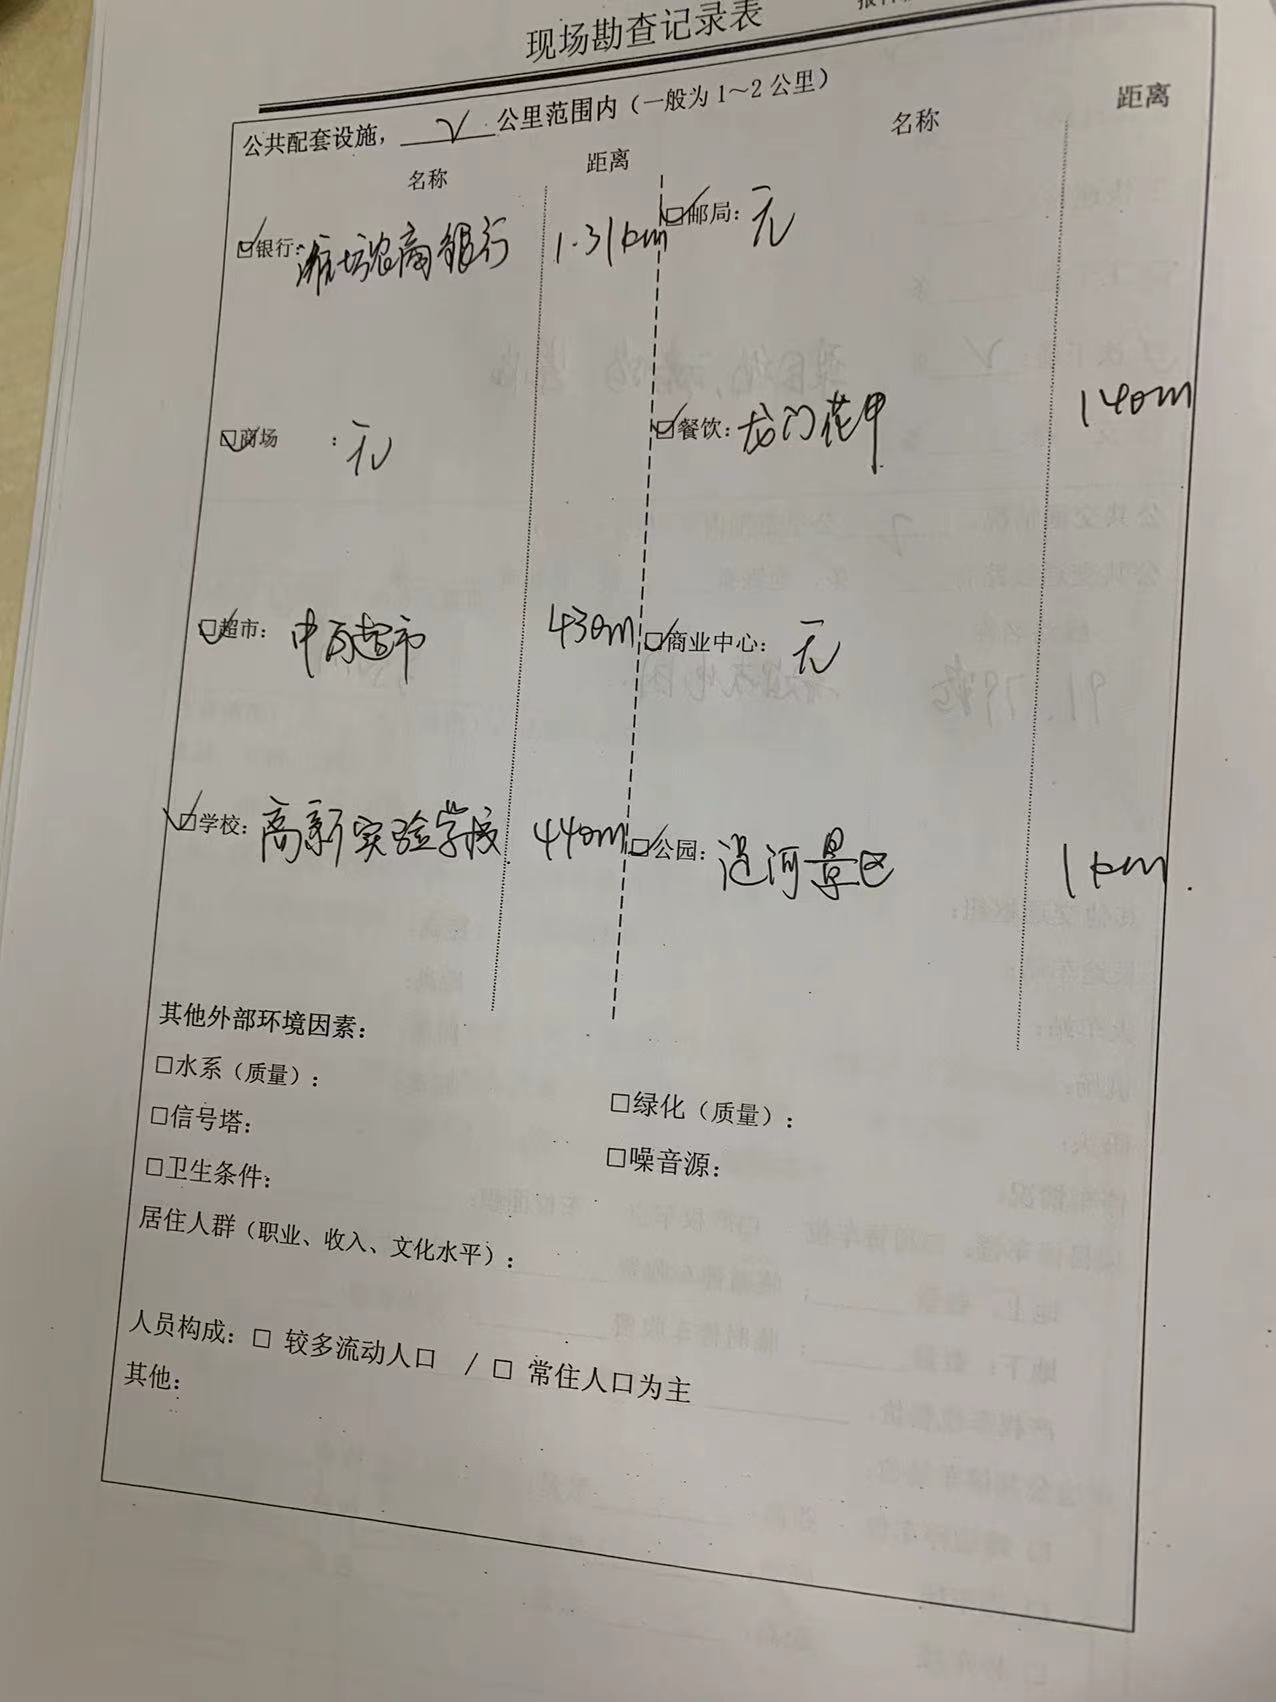 现场勘查记录表
公共配套设施，√公里范围内（一般为1～2公里）
名称 距离 名称 距离
☑银行：潍坊农商银行 1.31km ☑邮局：无
☑商场：无 ☑餐饮：龙门花甲 140m
☑超市：中百超市 430m ☑商业中心：无
☑学校：高新实验学校 440m ☑公园：浞河景区 1km
其他外部环境因素：
□水系（质量）： □绿化（质量）：
□信号塔： □噪音源：
□卫生条件：
居住人群（职业、收入、文化水平）：
人员构成：□ 较多流动人口 / □ 常住人口为主
其他：